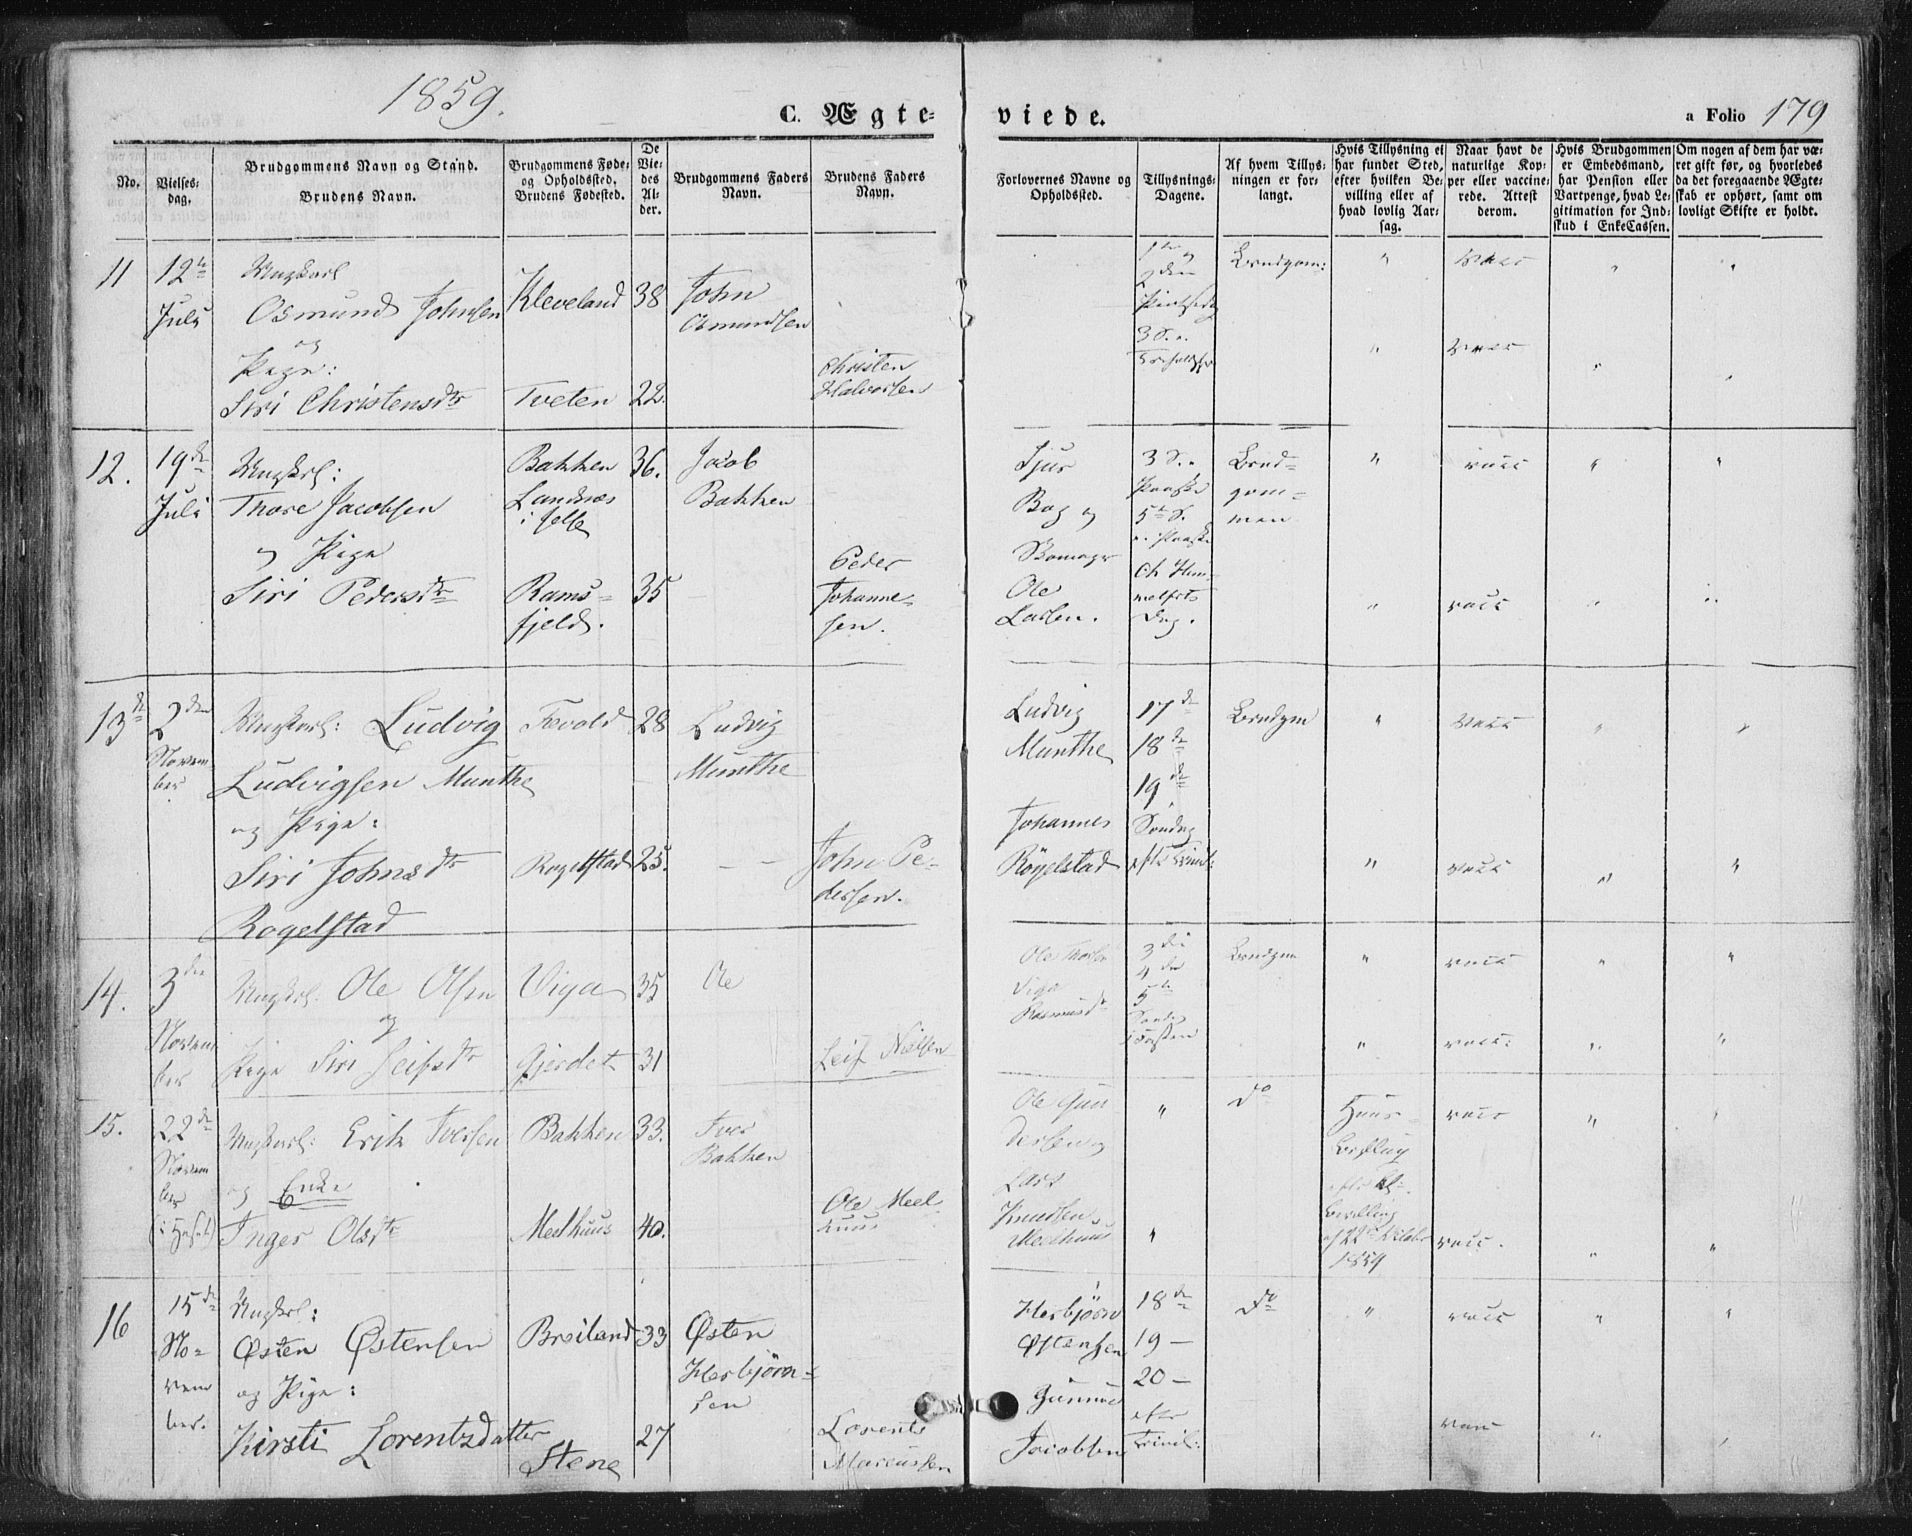 1859.
C. Ægte-
viede.
a Folio 179
No.
Vielses-
dag.
Brudgommens Navn og Stand.
Brudens Navn.
Brudgommens Føde-
og Opholdssted.
Brudens Fødested.
De
Vie-
des
Al-
der.
Brudgommens Faders
Navn.
Brudens Faders
Navn.
Forlovernes Navne og
Opholdssted.
Tillysnings-
Dagene.
Af hvem Tillys-
ningen er for-
langt.
Hvis Tillysning ei
har fundet Sted,
efter hvilken Be-
villing eller af
hvad lovlig Aar-
sag.
Naar havt de
naturlige Kop-
per eller vaccine-
rede. Attest
derom.
Hvis Brudgommen
er Embedsmand,
har Pension eller
Vartpenge, hvad Le-
gitimation for Ind-
skud i EnkeCassen.
Om nogen af dem har væ-
ret gift før, og hvorledes
da det foregaaende Ægte-
skab er ophørt, samt om
lovligt Skifte er holdt.
11
12te
Juli
Ungkarl
Osmund Johnsen
og
Pige:
Siri Christensdtr
Kleveland
Tveten
38
22.
John
Osmundsen
Christen
Halvorsen
3 S. e.
Brudgom:
"
vacc
"
"
"
vacc
"
"
12.
19de
Juli
Ungkrl:
Thore Jacobsen
og Pige
Siri Pedersdtr
Bakken
Landnæs
i
Rams-
fjeld.
36.
35
Jacob
Bakken
Peder
Johanne-
sen.
Sjur
Bag og
Skomager
Ole
Larsen.
3 S. e.
Paaske
5te S.
e. Paaske
Ch Him-
melfrts
Dag.
Brud-
gom-
men
"
vacc
"
"
"
vacc
"
"
13de
2den
Novem
ber
Ungkarl: Ludvig
Ludvigsen Munthe
og Pige:
Siri Johnsdtr
Rogelstad
Fævold
Rogelstad
28
25.
Ludvig
Munthe
John Pe-
dersen.
Ludvig
Munthe
Johannes
Rögelstad
17de
18de
19de
Söndag
eftr Trinit:
Brudgm
"
vacc
"
"
"
vacc
"
"
14.
3die
Novem
ber
Ungkrl. Ole Olsen
og
Pige Siri Leifsdtr
Viga
Gjerdet
35
31
Ole
Leif Nielsen
Ole
Viga
Rasmus
3die
4de
5te
Sønd
Brudgm
"
vacc
"
"
"
vacc.
"
"
15.
22de
Novem
ber
Ungkarl: Erik Iversen
og Enke
Inger Olsdtr
Bakken
Meelhuus
33.
40.
Iver
Bakken
Ole Meel
huus
Ole Gun
dersen og
Lars
Knudsen
Meelhuus
"
"
do
Huus-
Bevilling
1859
vacc
"
vacc.
"
"
16
15de
No-
vem
ber.
Ungkrl:
Østen Østensen
og Pige:
Kirsti Lorentzdatter
Breiland
Stene
33
27
Østen
Herbjörn-
sen
Lorents
Marcussen
Herbjörn
Østensen
Gunnar
Jacobsen
18de
19 —
20 —
efter
Trinit:
do
"
vacc
"
"
vacc
"
"